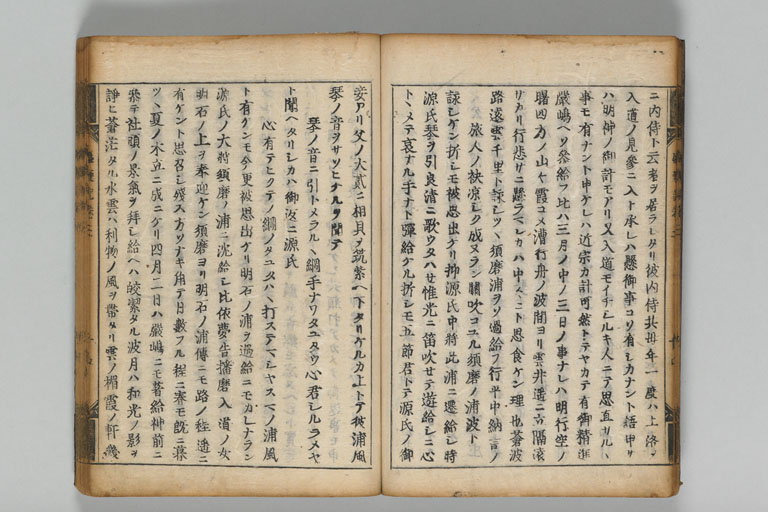 ニ内侍ト云者ヲ居ラレタリ彼内侍共毎年一度ハ上洛シ
入道ノ見参ニ入ト承レハ懸御事コソ有シカナント語申サ
ハ明神ノ御計モアリ又入道モイチシルキ人ニテ思直サルヽ
事モ有ナント申ケレハ近宗カ計可然トテヤカテ有御精進
厳嶋ヘソ発給フ比ハ三月ノ中ノ三日ノ事ナレハ明行空ノ
曙四方ノ山ヤ霞コメ漕行舟ノ波間ヨリ雲井遥ニ立隔
リカリ行悲サニ懸ラマシカハ中〻ニト思食ケン理也蒼波
路遠雲千里ト詠シツヽ須磨浦ヲソ過給フ行平中納言ノ
旅人ノ袂凉シク成ヌラン關吹コユル須磨ノ浦波ト
詠シケン折シモ被思出ケリ抑源氏中将此浦ニ遷給シ時
源氏琴ヲ引良清ニ歌ウタハセ惟光ニ笛吹セテ遊給シニ心
トヽメテ哀ナル手ナト彈給ケル折シモ五節君トテ源氏ノ御
妾アリ父ノ大貳ニ相具ヲ筑紫ヘ下タリケルカ上トテ彼浦風
琴ノ音ヲサソヒナルヲ聞テ
琴ノ音ニ引トメラルヽ綱手ナワタユタウ心君シルラメヤ
ト聞ヘタリシカハ御返ニ源氏
心有テヒクテノ綱ノタユタハヽ打ステマシヤスマノ浦風
ト有ケンモ今更被思出ケリ明石ノ浦ヲ過給ニモカレナラン
源氏ノ大将須磨ノ浦ニ沈給シ比依夢告播磨入道ノ女
明石ノ上ヲ奉迎ケン須磨ヨリ明石ノ浦傳ニモ路ノ程遥ニ
有ケント思召シ残ス方ソナキ角テ日數フル程ニ春モ既ニ暮
ツヽ夏ノ木立ニ成ニケリ四月二日ハ厳嶋ニモ著給神前ニ
参テ社頭ノ景氣ヲ拜シ給ヘハ皎潔タル波月ハ和光ノ影ヲ
諍ヒ蒼茫タル水雲ハ利物ノ風ヲ帶タリ雲ノ楣霞ノ軒幾